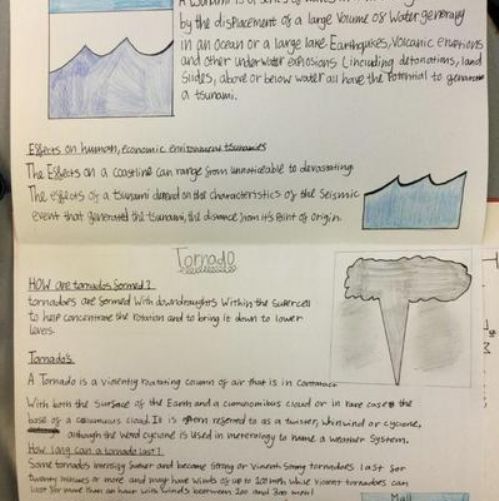 A Tsunami is a series of waves
by the displacement of a large Volume of Water generaly
in an ocean or a large lake. Earthquakes, Volcanic eruptions
and other underwater explosions (including detonations, land
Slides, above or below water all have the Potential to generate
a tsunami.
Effects on human, economic environment tsunamies
The Effects on a coastline can range from unnoticeable to devastating.
The effects of a tsunami depend on the characteristics of the Seismic
event that generated the tsunami, the distance from it's Point of Origin.
Tornado
HOW are tornados formed?
tornadoes are formed With downdraughts Within the supercell
to help concentrate the rotation and to bring it down to lower
levels.
Tornado's
A Tornado is a violently rotating column of air that is in contact
With both the surface of the Earth and a cumonimbus cloud or in rare cases the
base of a cloud. It is often reffered to as a twister, whirlwind or cyclone,
although the word cyclone is used in meterology to name a weather System.
How long can a tornado last?
Some tornados intensify further and become Strong or Strong tornadoes last for
twenty minutes or more and may have winds of up to 200 mph while violent tornadoes can
last for more than an hour with winds between 200 and 300